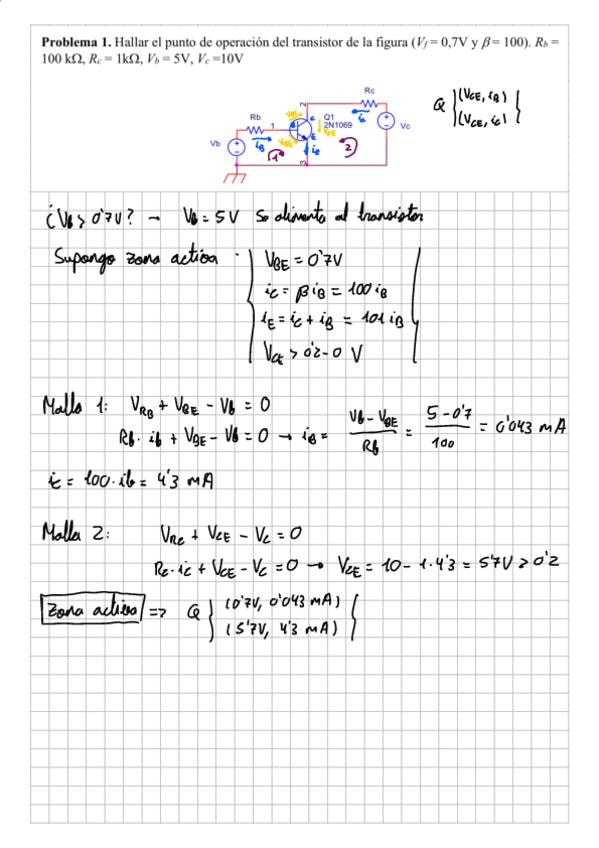 Problema 1. Hallar el punto de operación del transistor de la figura (Vf = 0,7V y β = 100). Rb =
100 kΩ, Rc = 1kΩ, Vb = 5V, Vc =10V
Rc
Rb
Q1
2N1069
Vb
Vc
1
2
3
B
C
E
iB
ic
iE
1
2
Q } (VCE, iB)
(VCE, ic) {
¿Vb > 0'7V? → Vb = 5V Se alimenta al transistor
Supongo zona activa :
VBE = 0'7V
ic = β iB = 100 iB
iE = ic + iB = 101 iB
VCE > 0'2-0 V
Malla 1: VRB + VBE - Vb = 0
Rb · ib + VBE - Vb = 0 → iB = (Vb - VBE) / Rb = (5 - 0'7) / 100 = 0'043 mA
ic = 100 · ib = 4'3 mA
Malla 2: VRc + VCE - Vc = 0
Rc · ic + VCE - Vc = 0 → VCE = 10 - 1·4'3 = 5'7V > 0'2
Zona activa => Q } (0'7V, 0'043 mA)
(5'7V, 4'3 mA) {